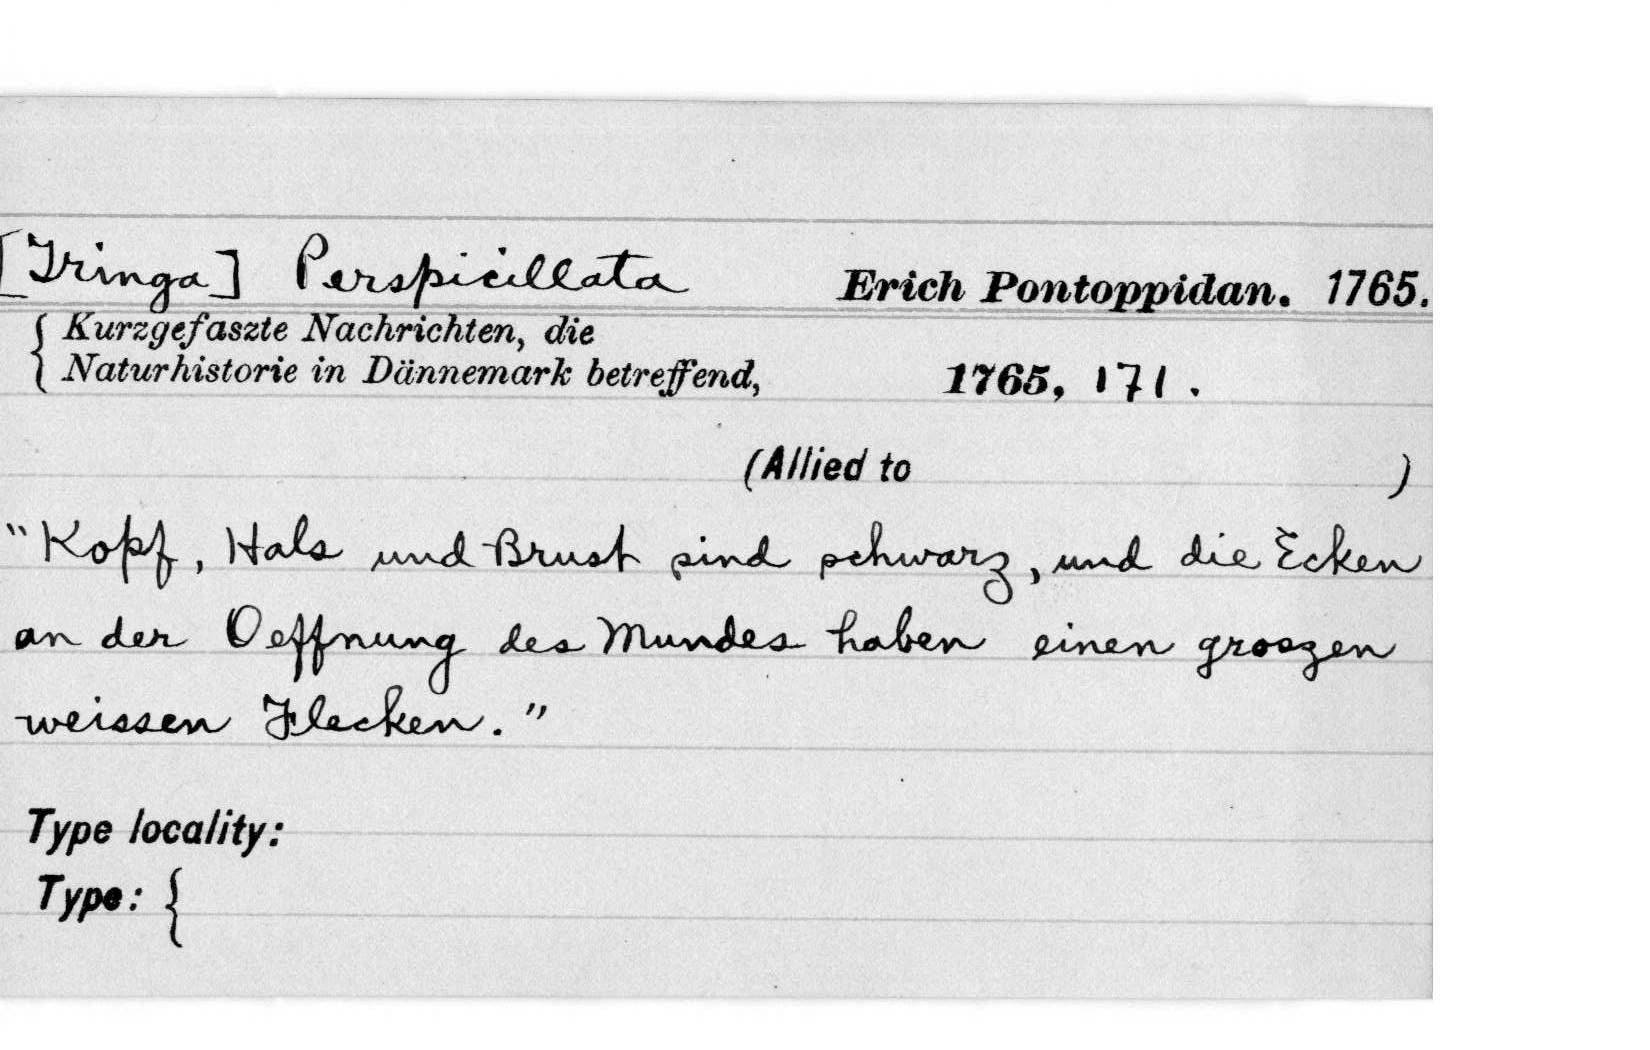 [Tringa] Perspicillata Erich Pontoppidan. 1765.
{ Kurzgefaszte Nachrichten, die
Naturhistorie in Dännemark betreffend, 1765, 171.
(Allied to )
"Kopf, Hals und Brust sind schwarz, und die Ecken
an der Oeffnung des Mundes haben einen groszen
weissen Flecken."
Type locality:
Type: {